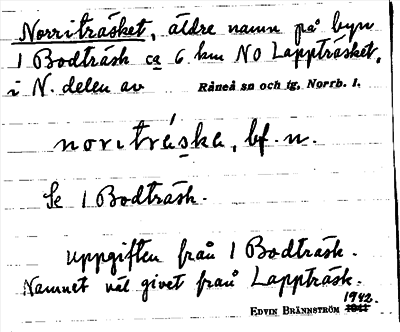 Norriträsket, äldre namn på byn
1 Bodträsk ca 6 km NO Lappträsket,
i N. delen av Råneå sn och tg, Norrb. l.
noriträ́ska, bf. n.
Se 1 Bodträsk.
Uppgiften från 1 Bodträsk.
Namnet väl givet från Lappträsk.
1942.
EDVIN BRÄNNSTRÖM 1941